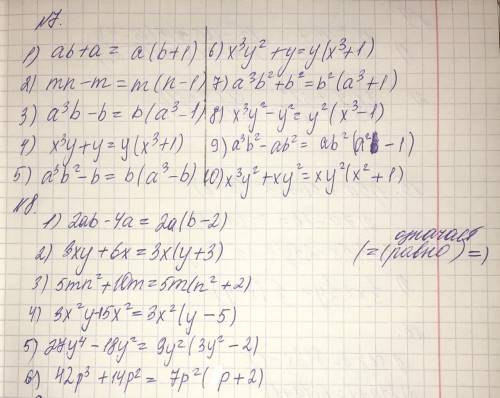 №7.
1) ab+a = a(b+1)
2) mn-m = m(n-1)
3) a³b-b = b(a³-1)
4) x³y+y = y(x³+1)
5) a³b²-b = b(a³-b)
6) x³y²+y = y(x³+1)
7) a³b²+b² = b²(a³+1)
8) x³y²-y² = y²(x³-1)
9) a³b²-ab² = ab²(a² -1)
10) x³y²+xy² = xy²(x²+1)
№8.
1) 2ab-4a = 2a(b-2)
2) 3xy+6x = 3x(y+3)
3) 5mn²+10m = 5m(n²+2)
4) 3x²y-15x² = 3x²(y-5)
5) 27y⁴-18y² = 9y²(3y²-2)
6) 42p³+14p² = 7p²(p+2)
означает
(=(равно)=)